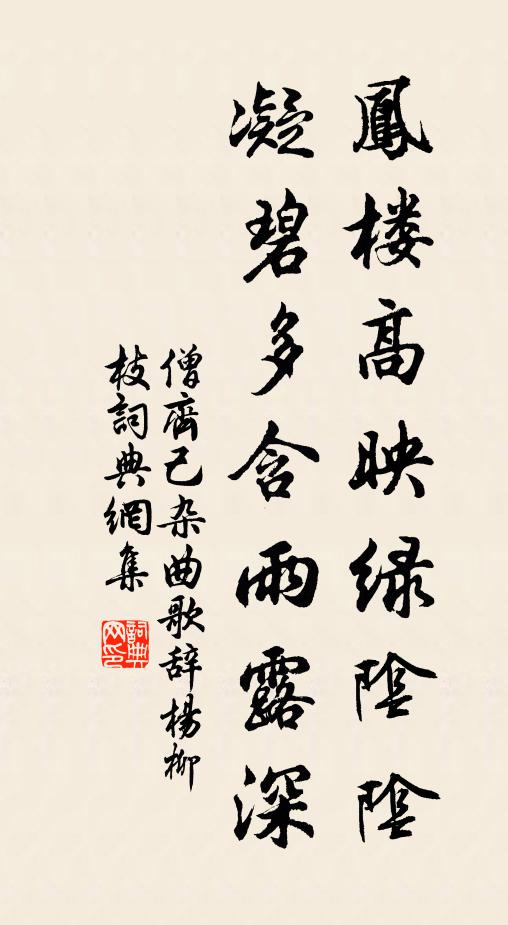 鳳楼高映緑陰陰
凝碧多含雨露深
僧齊己杂曲歌辞楊柳
枝詞典網集
詞典
网印